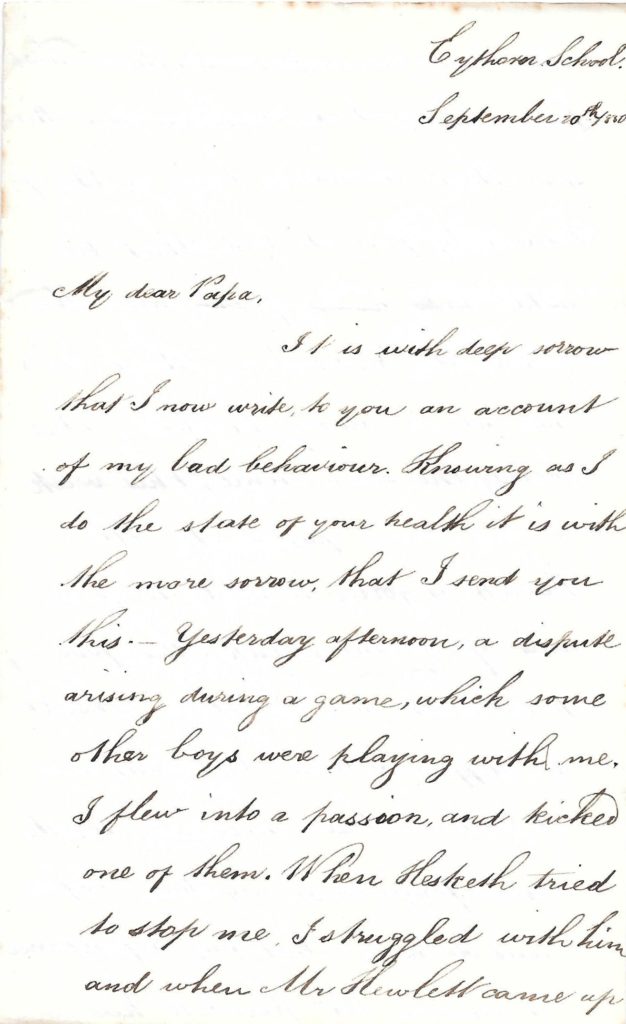 Eythorn School.
September 20th/
My dear Papa,
It is with deep sorrow
that I now write, to you an account
of my bad behaviour. Knowing as I
do the state of your health it is with
the more sorrow, that I send you
this. — Yesterday afternoon, a dispute
arising during a game, which some
other boys were playing with me.
I flew into a passion, and kicked
one of them. When Hesketh tried
to stop me, I struggled with him
and when Mr Hewlett came up